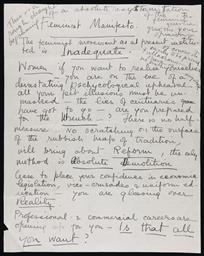 Feminist Manifesto.
The feminist movement as at present instituted
is Inadequate
Women if you want to realise yourselves
you are on the eve of a
devastating psychological upheaval
all your pet illusions must be unmasked
the lies of centuries
have got to go — are you prepared
for the Wrench — ? There is no half
measure No scratching on the surface
of the rubbish heap of tradition,
will bring about Reform, the only
method is Absolute Demolition
Cease to place your confidence in economic
legislation, vice-crusades & uniform education
— you are glossing over
Reality.
Professional & commercial careers are
opening up for you — Is that all
you want?